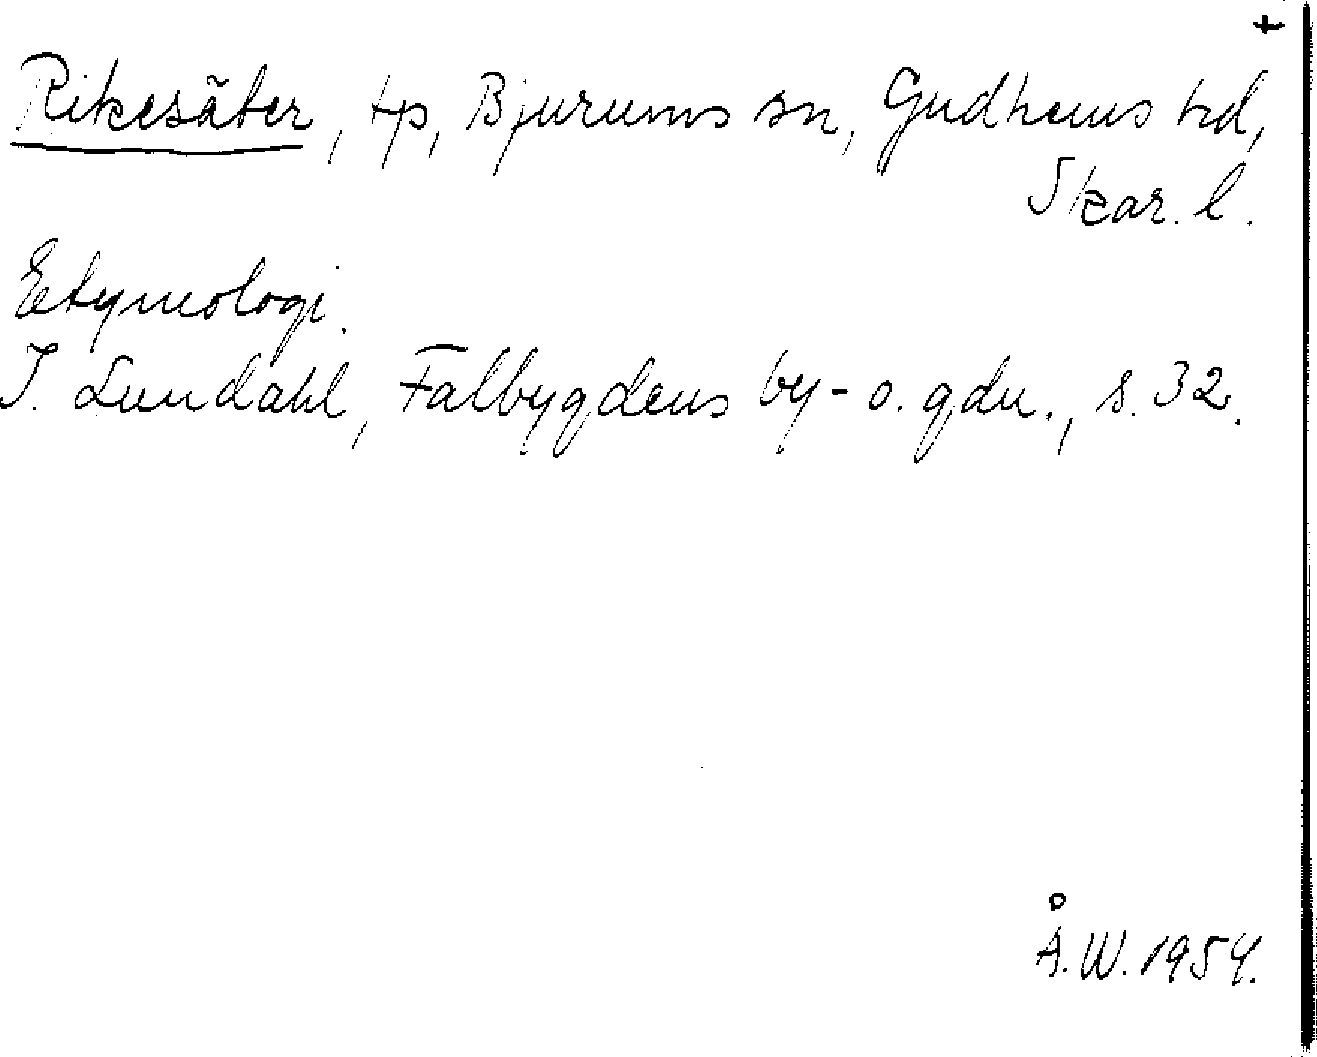 t
Rikesäter, tp, Bjurums sn, Gudhems hd,
Skar. l.
Etymologi.
I. Lundahl, Falbygdens by- o. gdn., s. 32.
Å.W. 1954.